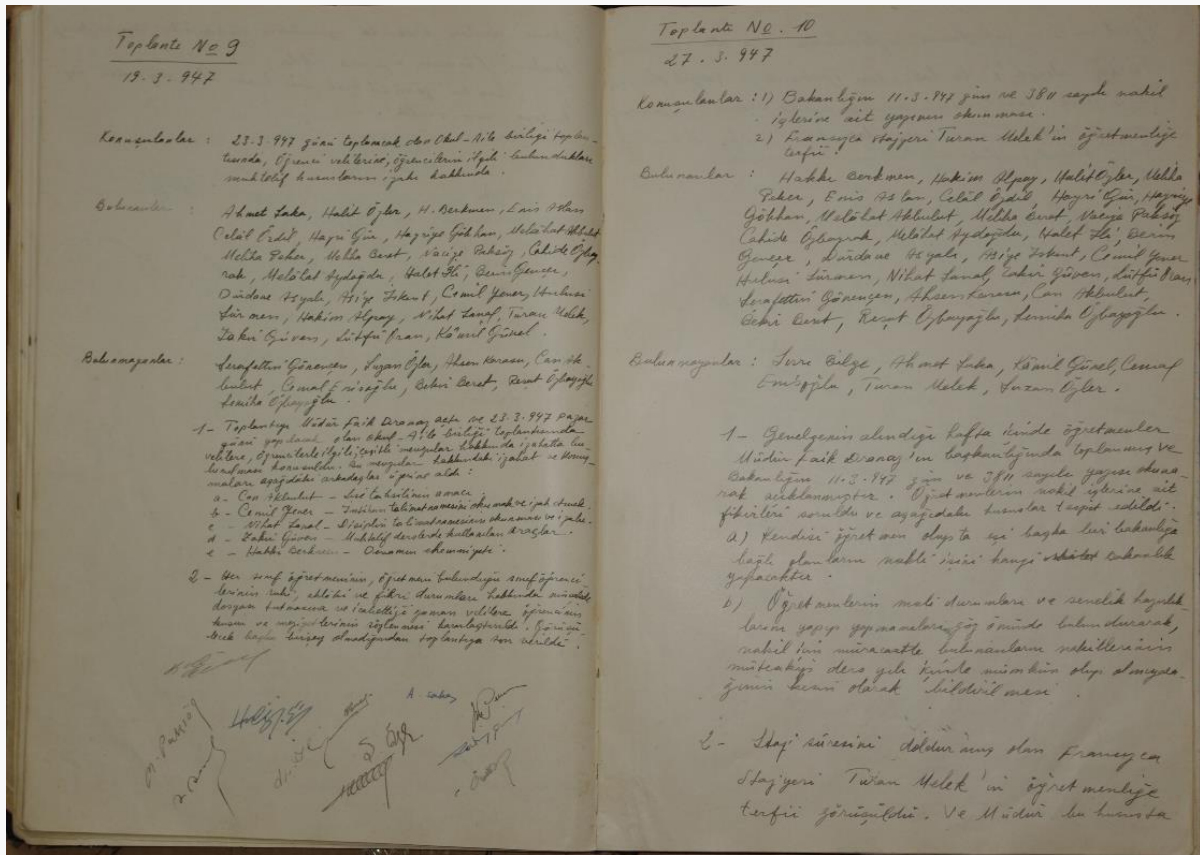 Toplantı No 9
19.3.947
Konuşulanlar : 23.3.947 günü toplanacak olan Okul-Aile birliği toplan-
tısında, öğrenci velilerine, öğrencilerin ilgili bulundukları
muhtelif hususların izahı hakkında.
Bulunanlar : Ahmet Saka, Halit Özler, H. Berkmen, Enis Aslan
Celâl Özdil, Hayri Gür, Hayriye Gökhan, Melâhat Akbulut
Meliha Peker, Meliha Berat, Naciye Paksöz, Cahide Özbay-
rak, Melâhat Aydoğdu, Halet İli, Berin Gençer,
Dürdane Asyalı, Asiye İskent, Cemil Yener, Hulusi
Sürmen, Hakim Alpay, Nihat Sanal, Turan Melek,
Zakir Güven, Lütfü Eran, Kâmil Günel.
Bulunmayanlar : Şerafettin Gönençen, Suzan Özler, Ahsen Karasu, Can Ak-
bulut, Cemal, Bekir Berat, Reşat Özbayoğlu
Semiha Özbayoğlu.
1- Toplantıyı Müdür Faik Dranaz açtı ve 23.3.947 pazar
günü yapılacak olan Okul-Aile birliği toplantısında
velilere, öğrencilerle ilgili çeşitli mevzular hakkında izahatta bu-
lunulması konuşuldu. Bu mevzular hakkındaki izahat ve konuş-
maları aşağıdaki arkadaşlar üzerine aldı:
a- Can Akbulut - Lise tahsilinin amacı
b- Cemil Yener - İmtihan talimatnamesini okumak ve izah etmek.
c- Nihat Sanal - Disiplin talimatnamesinin okunması ve izahı.
d- Zakir Güven - Muhtelif derslerde kullanılan araçlar.
e- Hakkı Berkmen - Devamın ehemmiyeti.
2- Her sınıf öğretmeninin, öğretmen bulunduğu sınıf öğrenci-
lerinin ruhî, ahlâkî ve fikrî durumları hakkında
dosyası tutmasına ve icabettiği zaman velilere öğrencinin
kusur ve meziyetlerinin söylenmesi kararlaştırıldı. Görüşü-
lecek başka birşey olmadığından toplantıya son verildi.
Toplantı No. 10
27.3.947
Konuşulanlar : 1) Bakanlığın 11.3.947 gün ve 3811 sayılı nakil
işlerine ait yazının okunması.
2) Fransızca stajyeri Turan Melek'in öğretmenliğe
terfii.
Bulunanlar : Hakkı Berkmen, Hakim Alpay, Halit Özler, Meliha
Peker, Enis Aslan, Celâl Özdil, Hayri Gür, Hayriye
Gökhan, Melâhat Akbulut, Meliha Berat, Naciye Paksöz
Cahide Özbayrak, Melâhat Aydoğdu, Halet İli, Berin
Gençer, Dürdane Asyalı, Asiye İskent, Cemil Yener
Hulusi Sürmen, Nihat Sanal, Zakir Güven, Lütfü Eran
Şerafettin Gönençen, Ahsen Karasu, Can Akbulut,
Bekir Berat, Reşat Özbayoğlu, Semiha Özbayoğlu.
Bulunmayanlar : Sırrı Bilge, Ahmet Saka, Kâmil Günel, Cemal
Turan Melek, Suzan Özler.
1- Genelgenin alındığı hafta içinde öğretmenler
Müdür Faik Dranaz'ın başkanlığında toplanmış ve
Bakanlığın 11.3.947 gün ve 3811 sayılı yazısı okuna-
rak açıklanmıştır. Öğretmenlerin nakil işlerine ait
fikirleri soruldu ve aşağıdaki hususlar tespit edildi.
a) Kendisi öğretmen olupta eşi başka bir bakanlığa
bağlı olanların nakli işini hangi bakanlık
yapacaktır.
b) Öğretmenlerin mali durumları ve senelik hazırlık-
larını yapıp yapmamaları göz önünde bulundurarak,
nakil için müracaatte bulunanların nakillerinin
müteakip ders yılı içinde mümkün olup olmayaca-
ğının kesin olarak bildirilmesi
2- Staj süresini doldurmuş olan Fransızca
Stajyeri Turan Melek'in öğretmenliğe
terfii görüşüldü. Ve Müdür, bu hususta